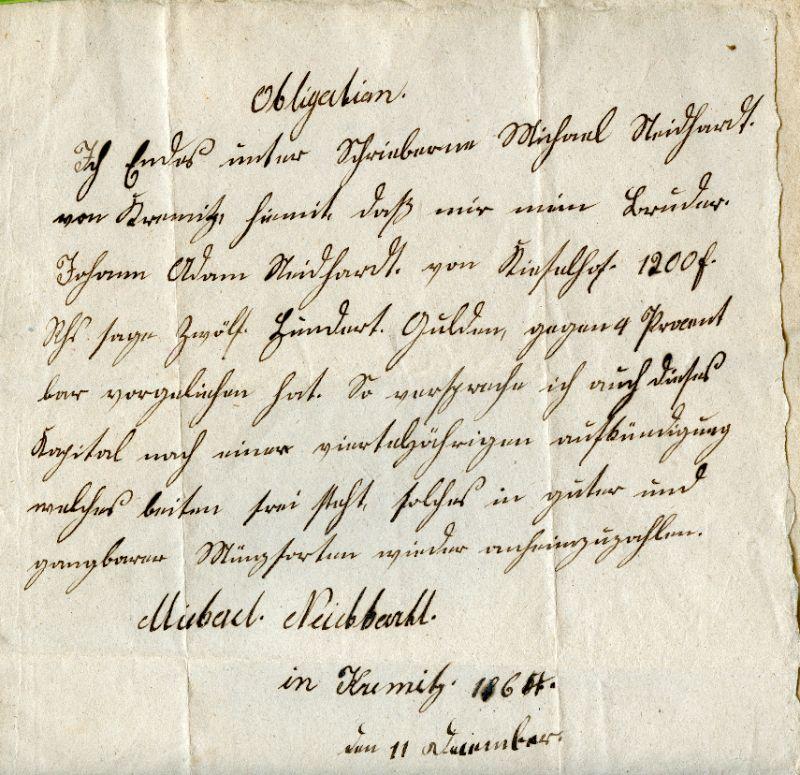 Obligation.
Ich Endes unter Schriebene Michael Neidhardt.
von Kremitz, hiemit, daß mir mein Bruder.
Johann Adam Neidhardt. von Kieselhof. 1200 f.
Rhs sage Zwölf. Hundert. Gulden, gegen 4 Procent
bar vorgeliehen hat. So verspreche ich auch dieses
Kapital nach einer vierteljährigen aufkündigung
welches beiten frei steht, solches in guter und
gangbarer Münzsorten wieder anheimzuzahlen.
Michael. Neidhardt.
in Kremitz. 1864.
den 11 Dezember.